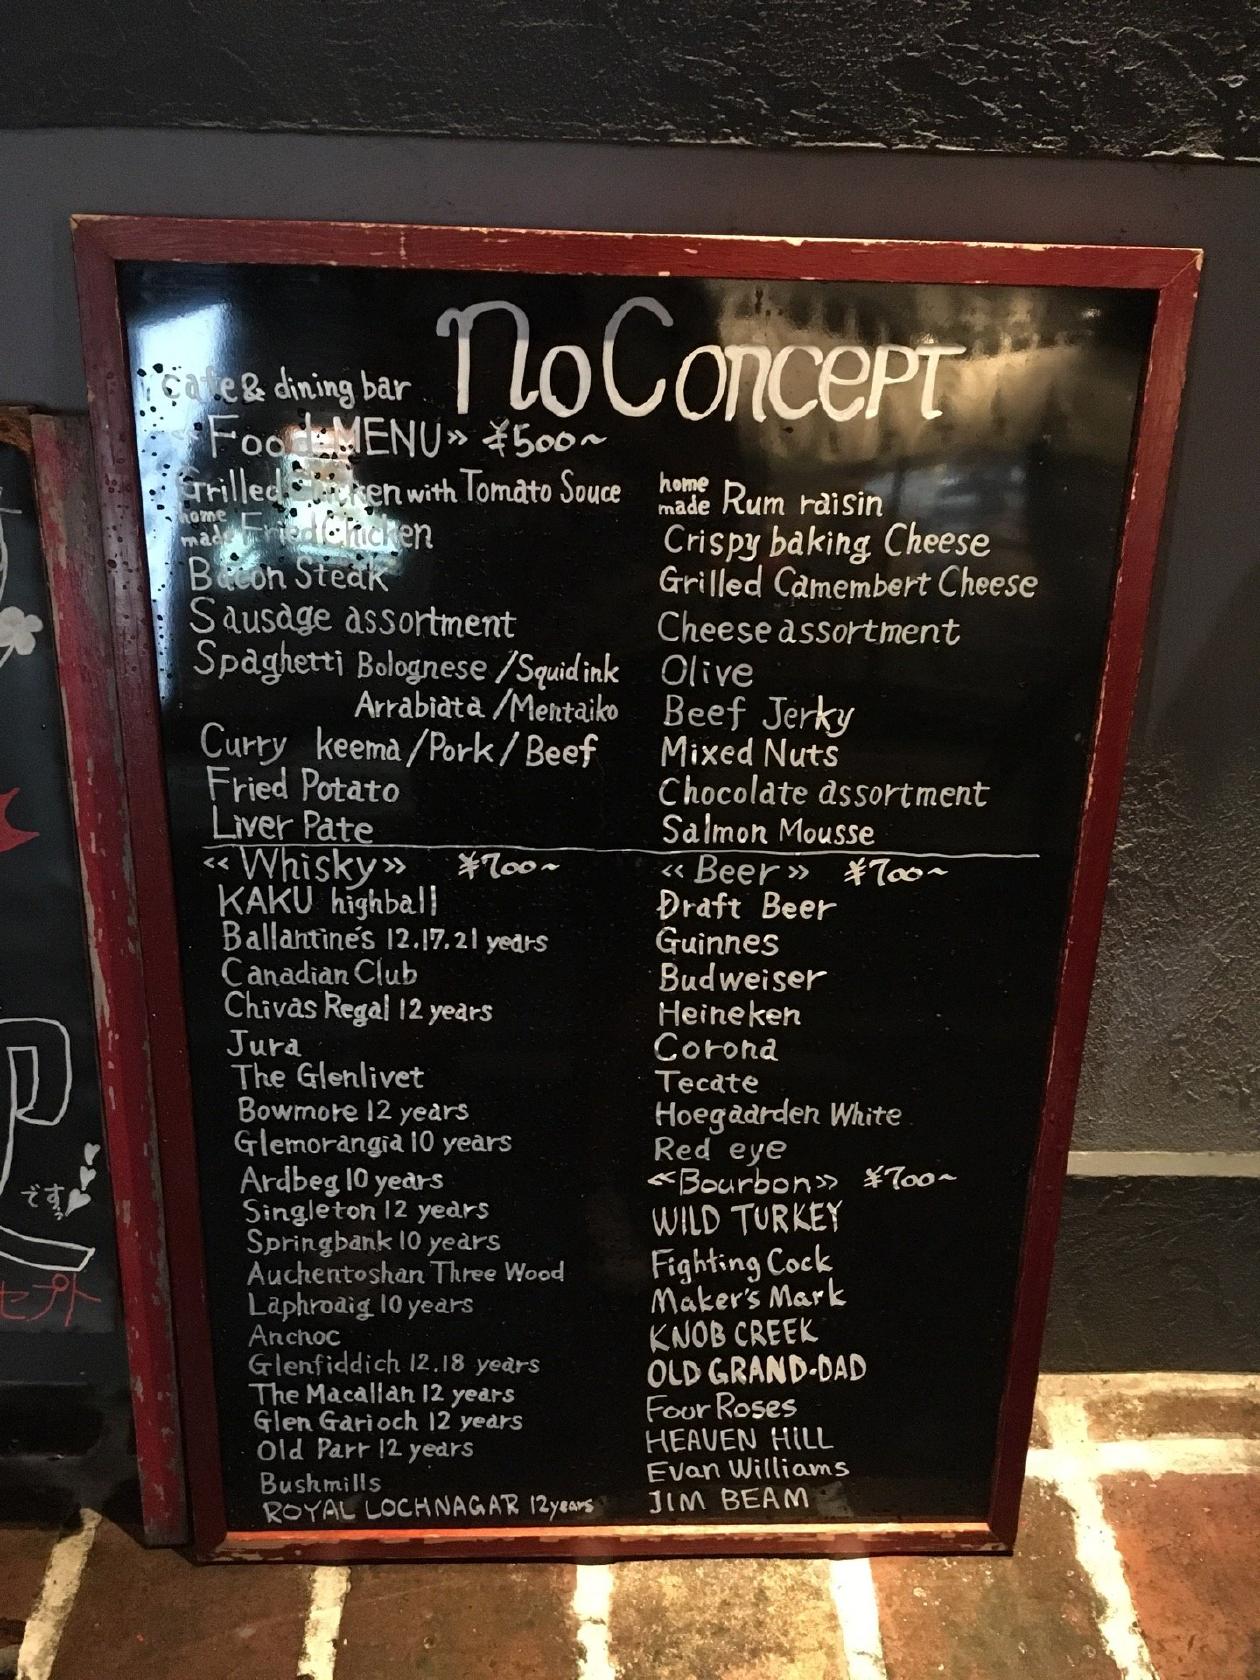 No Concept
cafe & dining bar
« Food MENU» ¥500~
Grilled Chicken with Tomato Souce
home made Fried Chicken
Bacon Steak
Sausage assortment
Spaghetti Bolognese / Squid ink
Arrabiata / Mentaiko
Curry keema / Pork / Beef
Fried Potato
Liver Pate
home made Rum raisin
Crispy baking Cheese
Grilled Camembert Cheese
Cheese assortment
Olive
Beef Jerky
Mixed Nuts
Chocolate assortment
Salmon Mousse
«Whisky» ¥700~
KAKU highball
Ballantine's 12.17.21 years
Canadian Club
Chivas Regal 12 years
Jura
The Glenlivet
Bowmore 12 years
Glemorangia 10 years
Ardbeg 10 years
Singleton 12 years
Springbank 10 years
Auchentoshan Three Wood
Laphroaig 10 years
Ancnoc
Glenfiddich 12.18 years
The Macallan 12 years
Glen Garioch 12 years
Old Parr 12 years
Bushmills
ROYAL LOCHNAGAR 12years
«Beer» ¥700~
Draft Beer
Guinnes
Budweiser
Heineken
Corona
Tecate
Hoegaarden White
Red eye
«Bourbon» ¥700~
WILD TURKEY
Fighting Cock
Maker's Mark
KNOB CREEK
OLD GRAND-DAD
Four Roses
HEAVEN HILL
Evan Williams
JIM BEAM
です
セプト